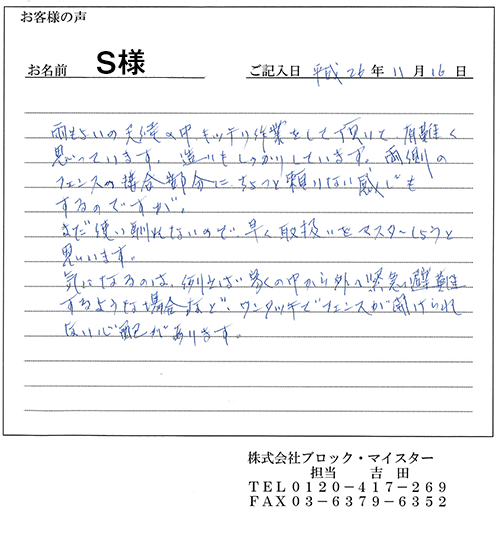 お客様の声
お名前 S様 ご記入日 平成26年11月16日
雨もよいの天候の中キッチリ作業をして頂いて、有難く
思っています。造りもしっかりしています。両側の
フェンスの接合部分にちょっと頼りない感じも
するのですが。
まだ使い馴れないので、早く取扱いをマスターしようと
思います。
気になるのは、例えば家の中から外へ緊急避難
するような場合など、ワンタッチでフェンスが開けられ
ない心配があります。
株式会社ブロック・マイスター
担当 吉田
TEL0120-417-269
FAX03-6379-6352